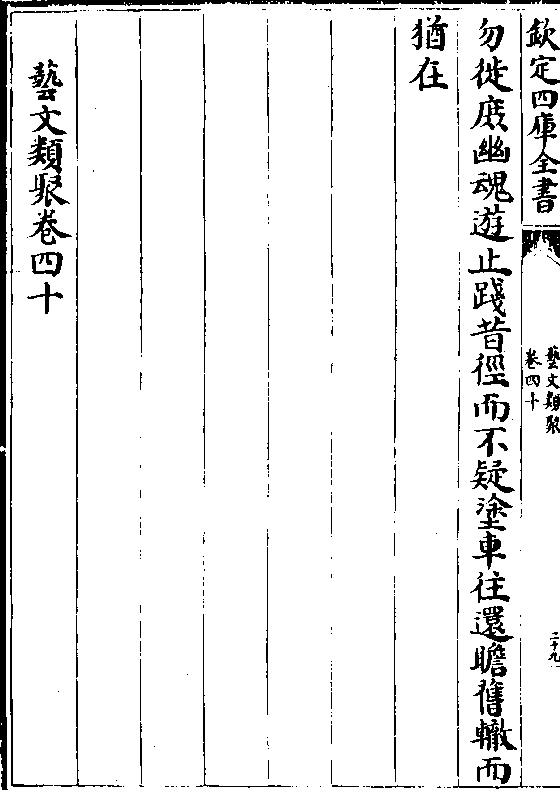 欽定四庫全書
藝文類聚
卷四十
二十九
勿徙庶幽魂遊止踐昔徑而不疑塗車往還瞻舊轍而
猶在
藝文類聚卷四十